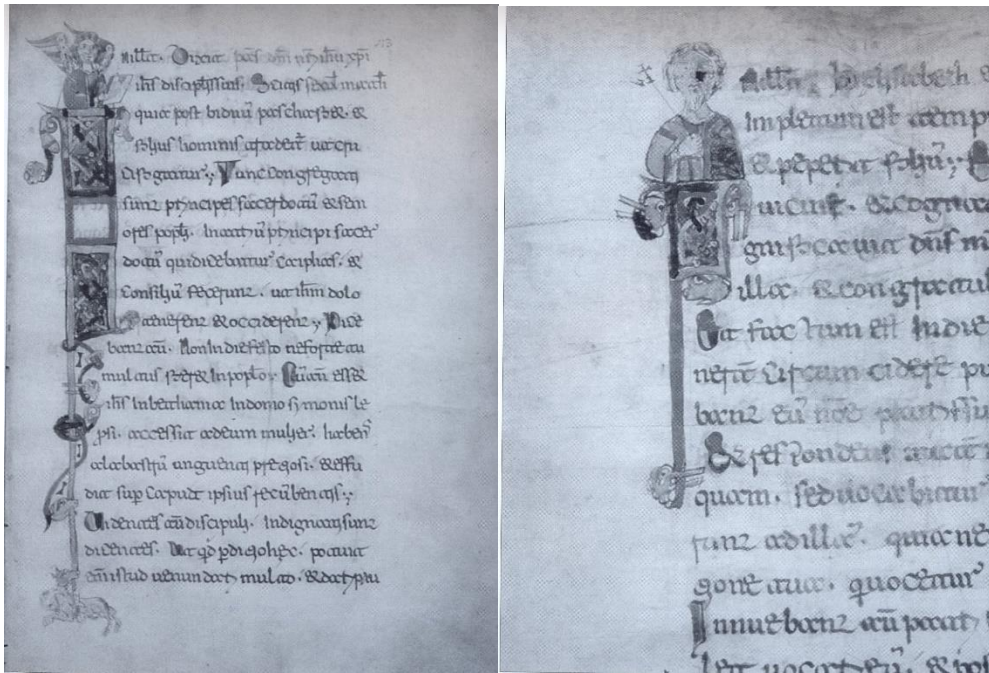 quia post biduū pascha fi&. &
filius hominis tradet̄ ut cru
cifigatur; Tunc congregati
sunt principes sacerdotū & seni
ores popł. In atriū principis sacer
dotū qui dicebatur Caiphas. &
consiliū fecerunt. ut ihm dolo
tenerent & occiderent; Dice
bant aū. Non in die festo ne forte tu
multus fier& in popło. Cū aū ess&
ihs In bethania In domo symonis le
psi. accessit ad eum mulier. habens
alabastrū unguenti pretiosi. & effu
dit sup caput ipsius recūbentis;
Videntes aū discipuli. Indignati sunt
dicentes. Ut qd pditio hec. potuit
enī istud uenundari multo. & dari pau
Impletum est temp
& peperit filiū;
uicini. & cogna
gnificauit dns m
illa. & congratul
Et factum est In die
circumcidere pu
bant eū
Et respondens
quam. sed uocabitur
runt ad illā. quia ne
tione tua. quocetur
Innuebant aū patri
let uocari eū. & pos